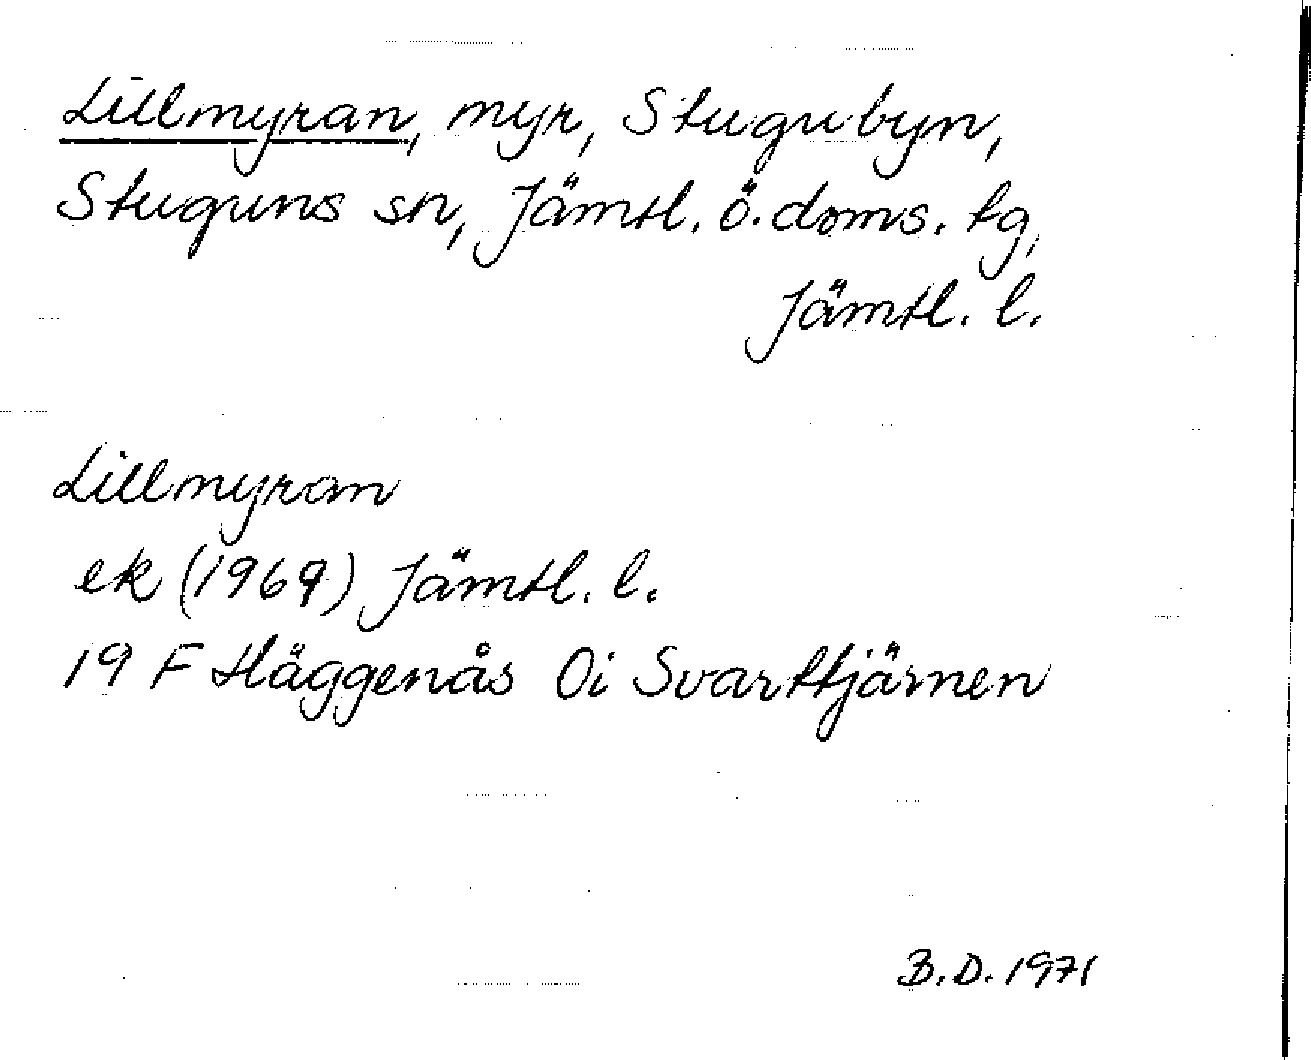 Lillmyran, myr, Stugubyn,
Stuguns sn, Jämtl. ö. doms. tg,
Jämtl. l.
Lillmyran
ek (1969) Jämtl. l.
19 F Häggenås 0i Svarttjärnen
B.D. 1971